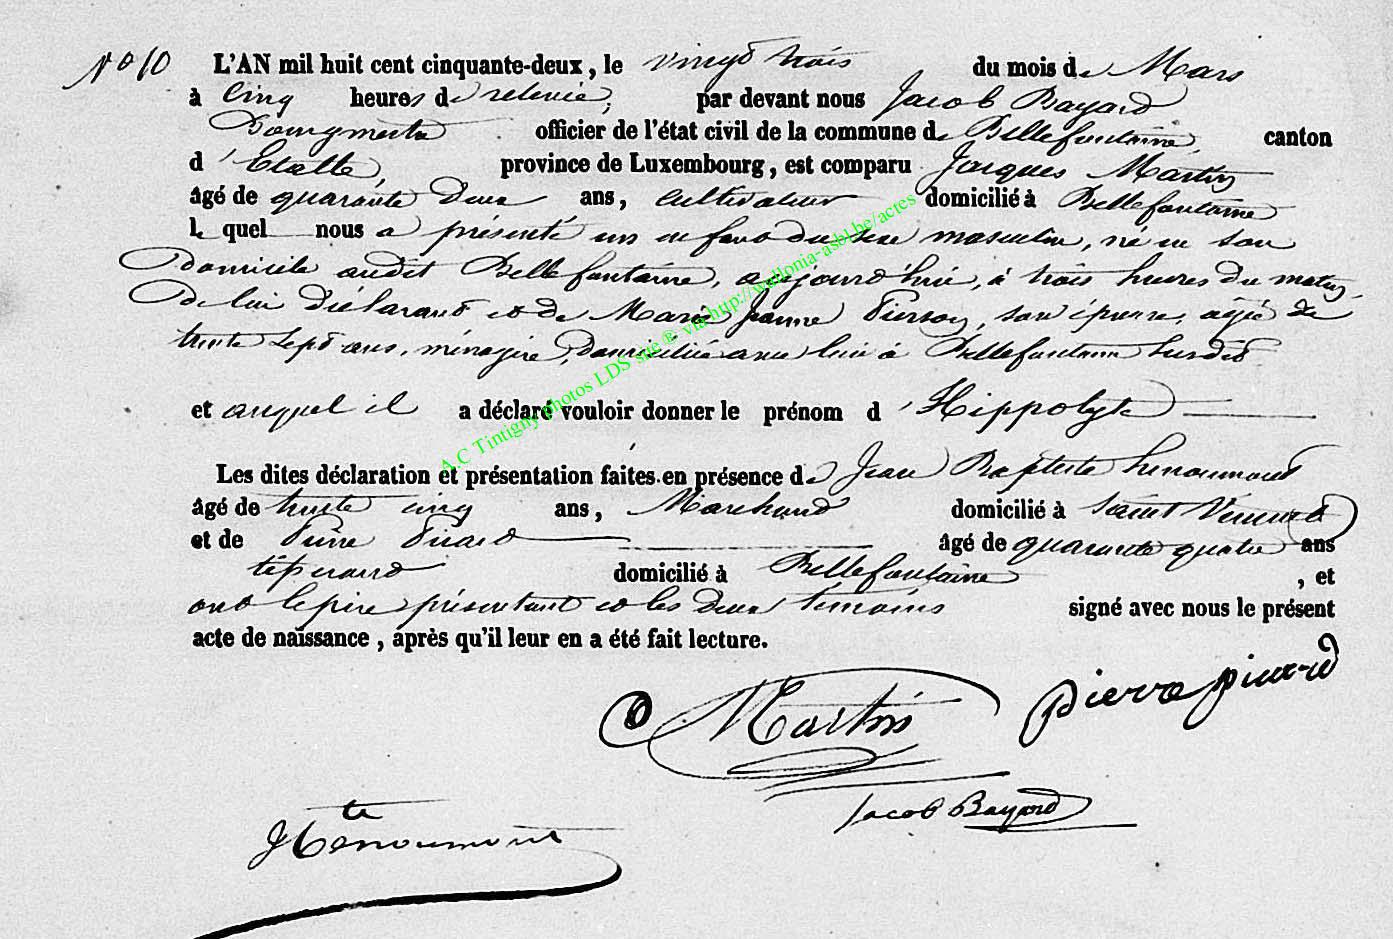 N° 10 L'AN mil huit cent cinquante-deux, le vingt trois du mois de Mars
à Cinq heures de relevée, par devant nous Jacob Bayard
Bourgmestre officier de l'état civil de la commune de Bellefontaine, canton
d'Etalle, province de Luxembourg, est comparu Jacques Martin
âgé de quarante deux ans, cultivateur domicilié à Bellefontaine
lequel nous a présenté un enfant du sexe masculin, né en son
domicile audit Bellefontaine, aujourd'hui, à trois heures du matin,
de lui déclarant et de Marie Jeanne Pierson, son épouse, agée de
trente sept ans, ménagère, domiciliée avec lui à Bellefontaine susdit
et auquel il a déclaré vouloir donner le prénom d'Hippolyte
Les dites déclaration et présentation faites en présence de Jean Baptiste henoumont
âgé de trente cinq ans, Marchand domicilié à Saint Vincent
et de Pierre Picard âgé de quarante quatre ans
tisserand domicilié à Bellefontaine, et
ont le père présentant et les deux témoins signé avec nous le présent
acte de naissance, après qu'il leur en a été fait lecture.
Martin pierre picard
Jacob Bayard
JBte henoumont
A.C Tintigny photos LDS site ® via http://wallonia-asbl.be/actes